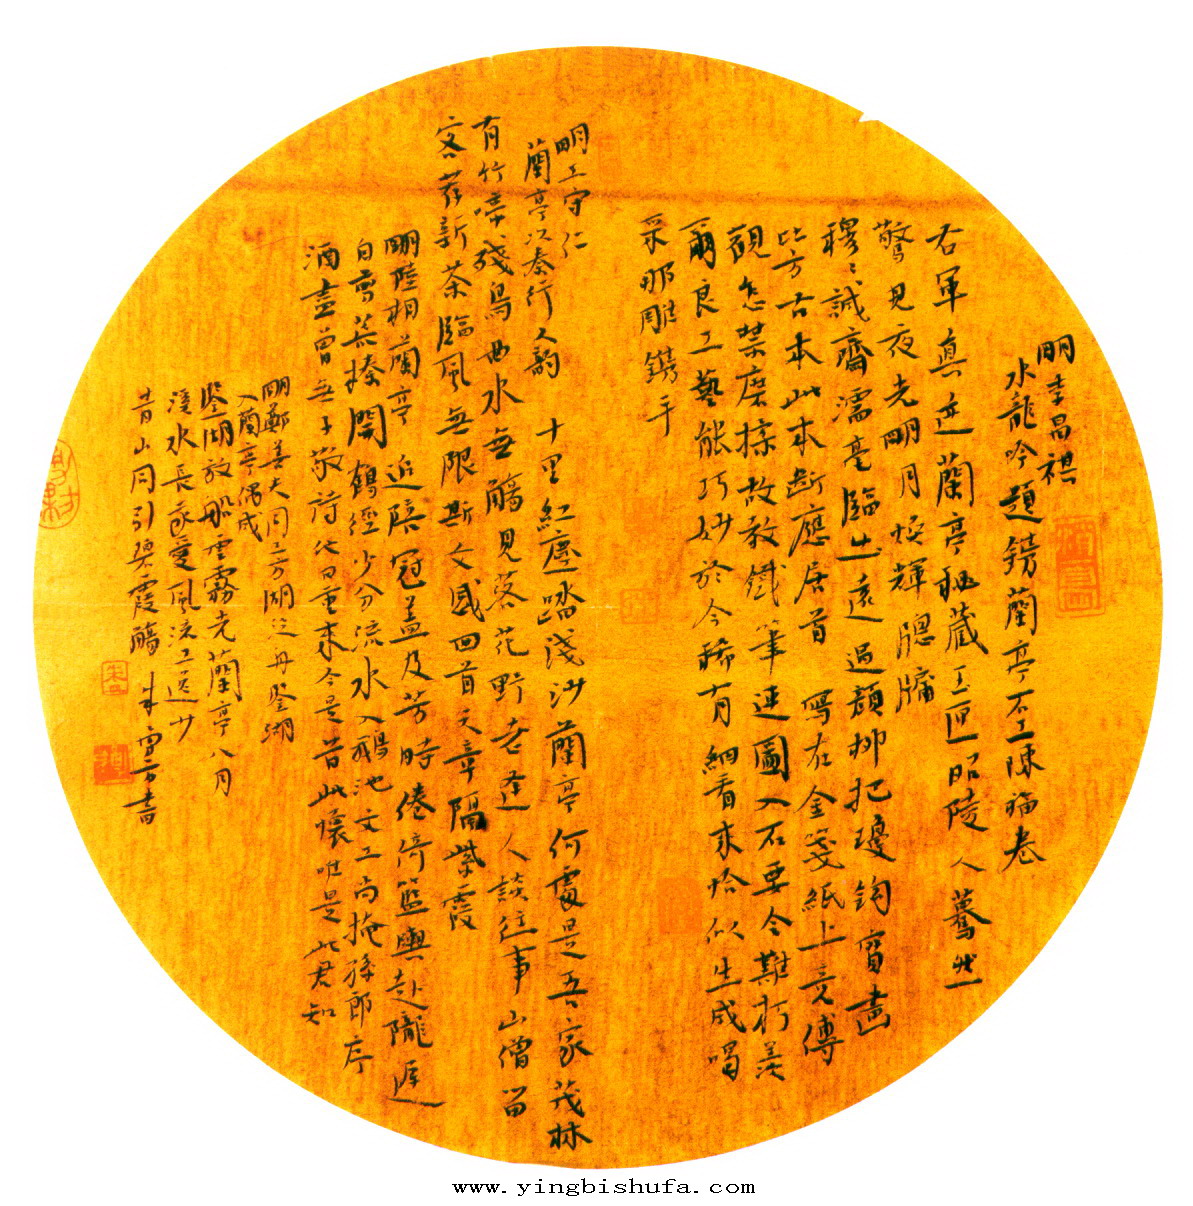 明李昌祺
水龍吟題鐫蘭亭石工陳福卷
右軍真迹蘭亭秘藏玉匣昭陵人驀然
驚見夜光明月炫輝牕牖
穆穆誠齋濡毫臨出遠過顏柳把瓊鈎寶畫
比方古本此本斷應居首 寫在金箋紙上竞傅
觀怎禁磨揉故教鐵筆連圖入石要令難朽羡
爾良工藝能巧妙於今稀有細看來恰似生成喝
采那雕鐫手
明王守仁
蘭亭次秦行人韵 十里紅塵踏淺沙蘭亭何處是吾家茂林
有竹啼殘鳥曲水無觴見落花野老逢人談往事山僧留
客荐新茶臨風無限斯文感回首天章隔紫霞
明陸相蘭亭 近陪冠盖及芳時倦倚籃輿赴隴遲
白雪榛開鶴徑少分流水入鵝池文工尚掩孫郎序
酒盡曾無子敬詩他日重來今是昔此懷唯是此君知
明鄭善夫同三方湖泛舟鑒湖
入蘭亭偶成
鑒湖放船雲霧光蘭亭八月
溪水長愛風流王逸少
昔山同引碧霞觴 書
www.yingbishufa.com